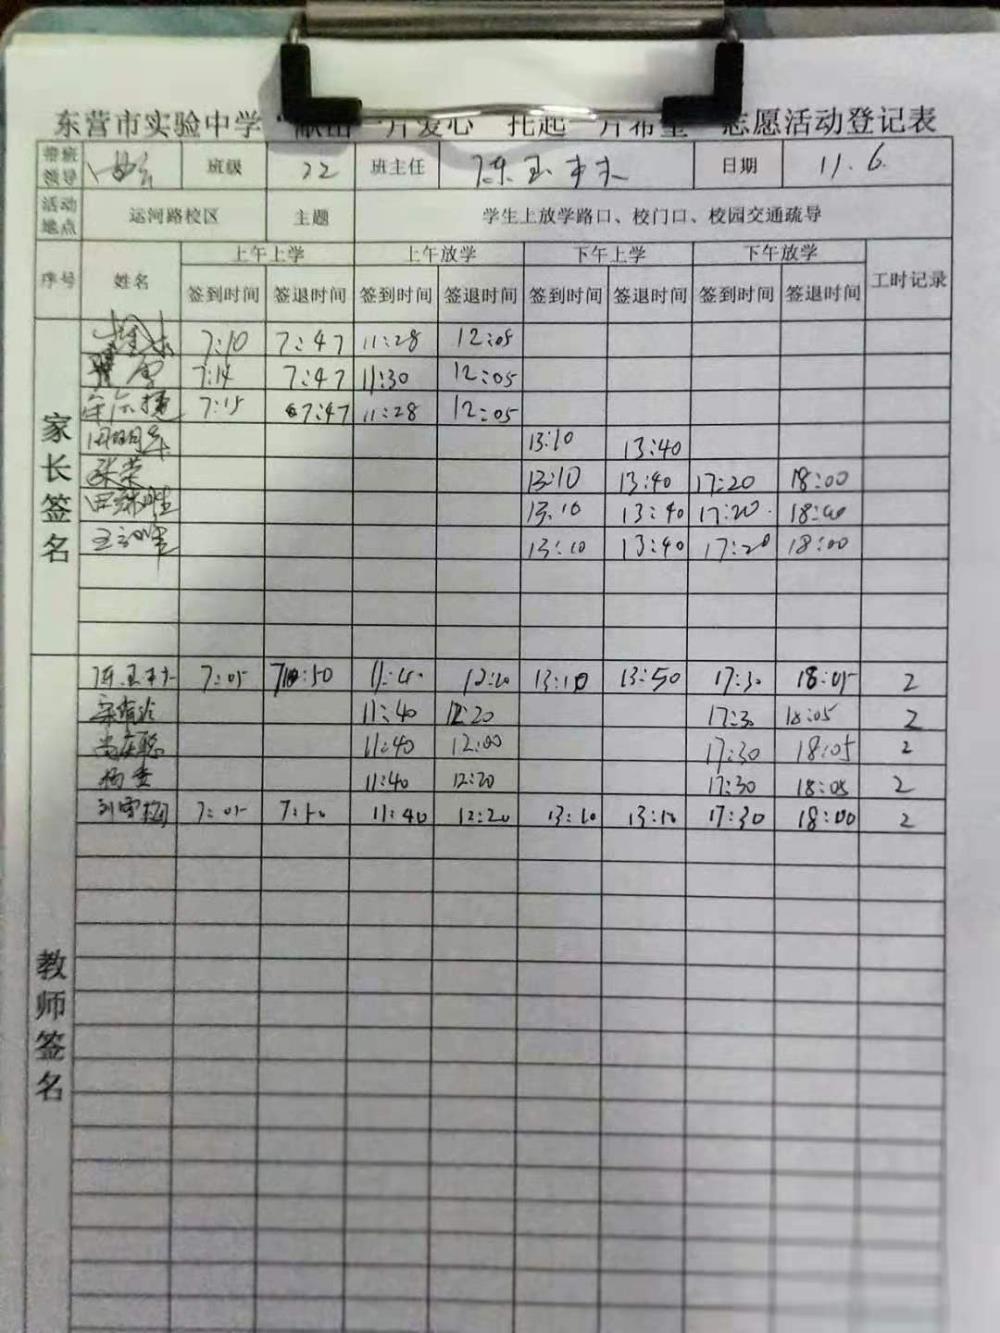 东营市实验中学“献出一片爱心 托起一片希望”志愿活动登记表
带班领导 班级 22 班主任 陈玉梅 日期 11.6
活动地点 运河路校区 主题 学生上放学路口、校门口、校园交通疏导
序号 姓名 上午上学 上午放学 下午上学 下午放学 工时记录
签到时间 签退时间 签到时间 签退时间 签到时间 签退时间 签到时间 签退时间
家长签名
7:10 7:47 11:28 12:05
7:14 7:47 11:30 12:05
7:15 7:47 11:28 12:05
13:10 13:40
张荣 13:10 13:40 17:20 18:00
13:10 13:40 17:20 18:00
13:10 13:40 17:20 18:00
教师签名
7:05 7:50 11:40 12:20 13:10 13:50 17:30 18:05 2
11:40 12:20 17:30 18:05 2
11:40 12:00 17:30 18:05 2
杨雯 11:40 12:20 17:30 18:05 2
刘雪梅 7:05 7:50 11:40 12:20 13:10 13:10 17:30 18:00 2